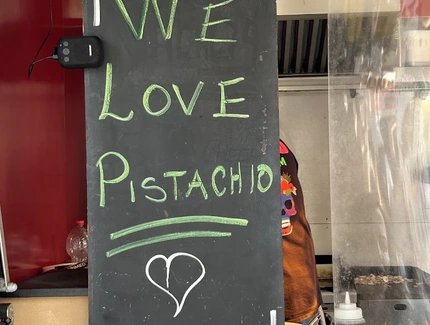 WE
LOVE
PISTACHIO